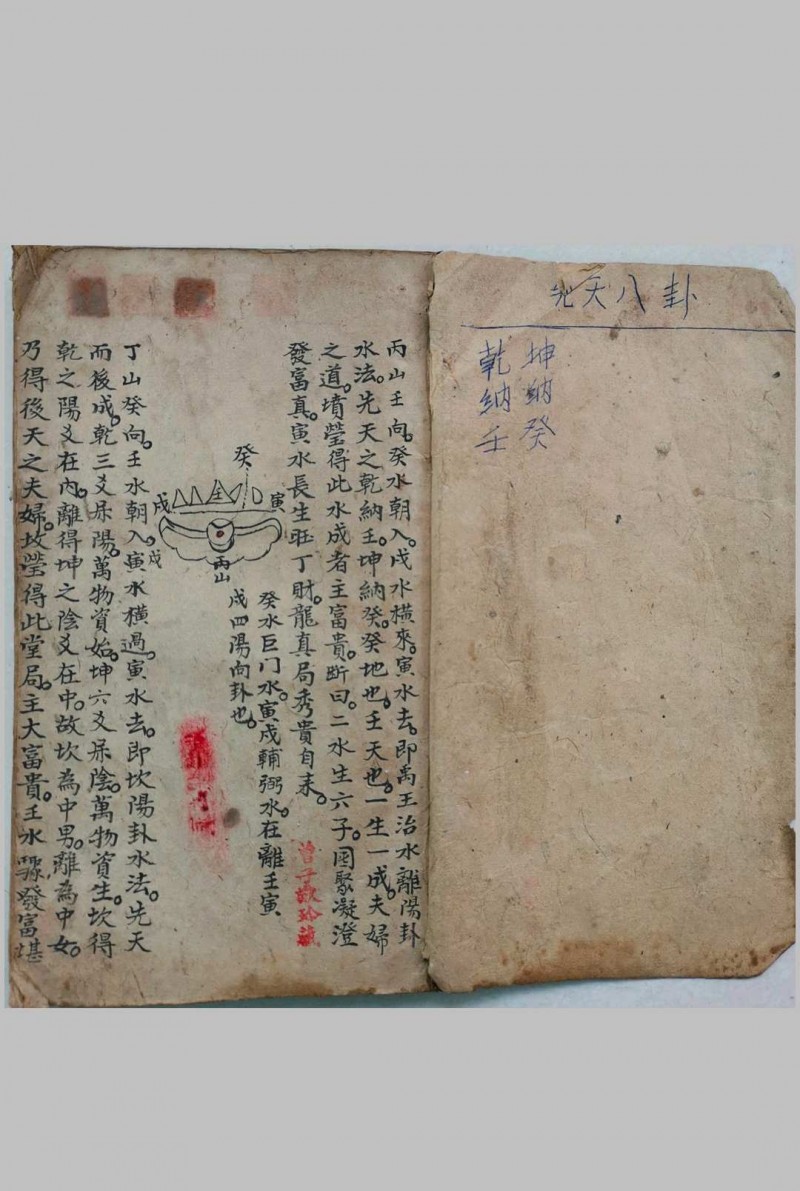 先天八卦
坤納癸
乾納壬
丙山壬向。癸水朝入。戌水橫來。寅水去。即禹王治水離陽卦
水法。先天之乾納壬。坤納癸。癸地也。壬天也。一生一成。夫婦
之道。墳塋得此水成者主富貴。斷曰。二水生六子。團聚凝澄
發富真。寅水長生旺丁財。龍真局秀貴自来。
曾子敬珍藏
癸水巨门水。寅戌輔弼水。在離壬寅
戌四陽向卦也。
癸
寅
戌
丙山
戌
丁山癸向。壬水朝入。寅水橫過。寅水去。即坎陽卦水法。先天
而後成。乾三爻屬陽。萬物資始。坤六爻屬陰。萬物資生。坎得
乾之陽爻在内。離得坤之陰爻在中。故坎為中男。離為中女。
乃得後天之夫婦。故塋得此堂局。主大富貴。壬水驟發富堪